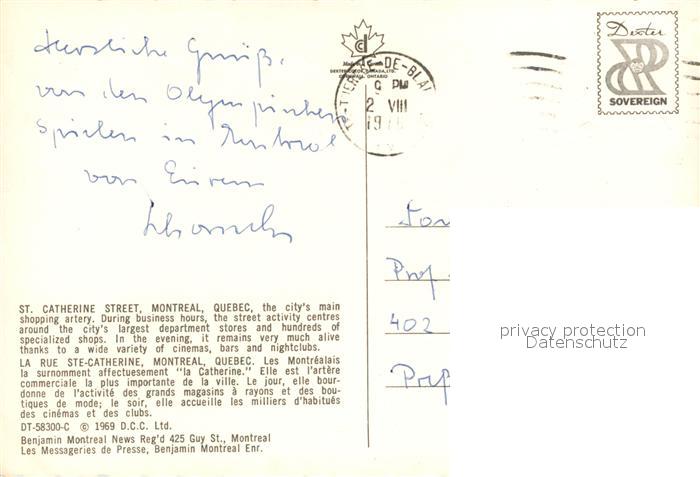 Herzliche Grüße,
von den Olympischen
Spielen in Montreal
von Eurem
Made in Canada
DEXTER COLOR CANADA, LTD.
CORNWALL, ONTARIO
-DE-BLA
PM
2 VIII
197
Dexter
SOVEREIGN
Prof.
402
ST. CATHERINE STREET, MONTREAL, QUEBEC, the city's main
shopping artery. During business hours, the street activity centres
around the city's largest department stores and hundreds of
specialized shops. In the evening, it remains very much alive
thanks to a wide variety of cinemas, bars and nightclubs.
LA RUE STE-CATHERINE, MONTREAL, QUEBEC. Les Montréalais
la surnomment affectuesement "la Catherine." Elle est l'artère
commerciale la plus importante de la ville. Le jour, elle bour-
donne de l'activité des grands magasins à rayons et des bou-
tiques de mode; le soir, elle accueille les milliers d'habitués
des cinémas et des clubs.
DT-58300-C © 1969 D.C.C. Ltd.
Benjamin Montreal News Reg'd 425 Guy St., Montreal
Les Messageries de Presse, Benjamin Montreal Enr.
privacy protection
Datenschutz